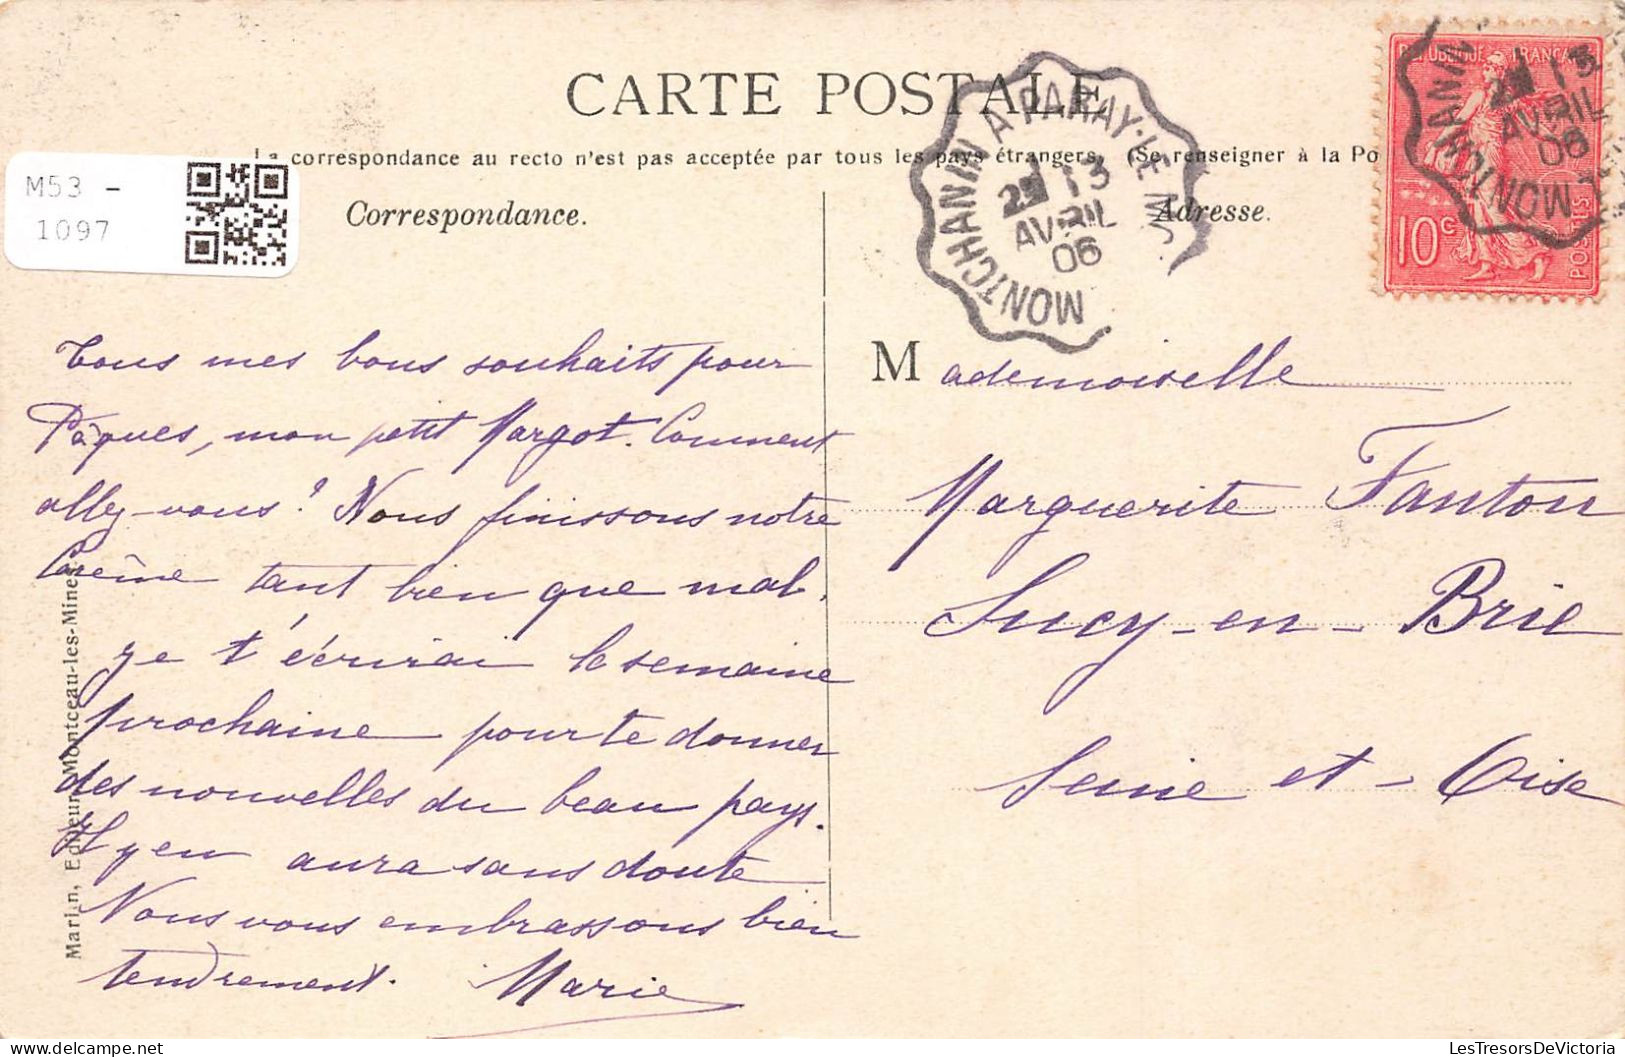 CARTE POSTALE
La correspondance au recto n'est pas acceptée par tous les pays étrangers. (Se renseigner à la Po
M53 -
1097
Correspondance.
Adresse.
MONTCHANIN A PARAY-LE M
13
AVRIL
06
RÉPUBLIQUE FRANÇAISE
10c
POSTES
MONTCHANIN
13
AVRIL
06
Tous mes bons souhaits pour
Pâques, mon petit Margot. Comment
allez-vous ? Nous finissons notre
Carême tant bien que mal.
Je t'écrirai la semaine
prochaine pour te donner
des nouvelles du beau pays.
Il y en aura sans doute
Nous vous embrassons bien
tendrement. Marie
Mademoiselle
Marguerite Fanton
Sucy-en-Brie
Seine et-Oise
Marlin, Editeur, Montceau-les-Mines.
LesTresorsDeVictoria